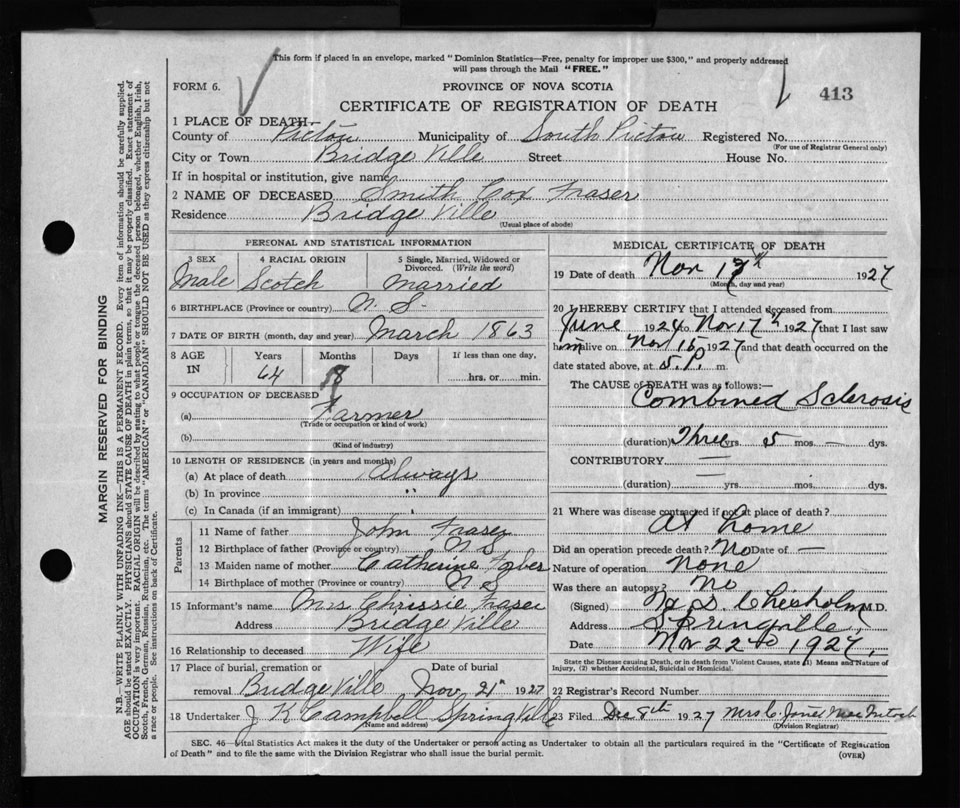 This form if placed in an envelope, marked "Dominion Statistics—Free, penalty for improper use $300," and properly addressed
will pass through the Mail "FREE."
FORM 6.
PROVINCE OF NOVA SCOTIA
413
CERTIFICATE OF REGISTRATION OF DEATH
1 PLACE OF DEATH—
County of Pictou Municipality of South Pictou Registered No.
(For use of Registrar General only)
City or Town Bridge Ville Street House No.
If in hospital or institution, give name
2 NAME OF DECEASED Smith Cox Fraser
Residence Bridge Ville
(Usual place of abode)
PERSONAL AND STATISTICAL INFORMATION
3 SEX 4 RACIAL ORIGIN 5 Single, Married, Widowed or Divorced. (Write the word)
Male Scotch married
6 BIRTHPLACE (Province or country) N. S.
7 DATE OF BIRTH (month, day and year) March 1863
8 AGE IN Years Months Days If less than one day,
64 8 hrs. or min.
9 OCCUPATION OF DECEASED
(a) Farmer
(Trade or occupation or kind of work)
(b)
(Kind of industry)
10 LENGTH OF RESIDENCE (in years and months)
(a) At place of death Always
(b) In province "
(c) In Canada (if an immigrant) "
Parents
11 Name of father John Fraser
12 Birthplace of father (Province or country) N S
13 Maiden name of mother Catherine
14 Birthplace of mother (Province or country) N S
15 Informant's name Mrs Chrissie Fraser
Address Bridge Ville
16 Relationship to deceased Wife
17 Place of burial, cremation or Date of burial
removal Bridge Ville Nov 21st 1927
18 Undertaker J K Campbell Spring Ville
(Name and address)
MEDICAL CERTIFICATE OF DEATH
19 Date of death Nov 17th 1927
(Month, day and year)
20 I HEREBY CERTIFY that I attended deceased from
June 1924 to Nov 17th 1927 that I last saw
him alive on Nov 15 1927 and that death occurred on the
date stated above, at 5 P. m.
The CAUSE OF DEATH was as follows:—
Combined Sclerosis
(duration) Three yrs. 5 mos. — dys.
CONTRIBUTORY —
(duration) — yrs. mos. dys.
21 Where was disease contracted if not at place of death?
At home
Did an operation precede death? No Date of —
Nature of operation None
Was there an autopsy? No
(Signed) S. Chisholm M.D.
Address Springville
Date Nov 22nd 1927.
State the Disease causing Death, or in death from Violent Causes, state (1) Means and Nature of
Injury, (2) whether Accidental, Suicidal or Homicidal.
22 Registrar's Record Number
23 Filed Dec 8th 1927 Mrs C. MacIntosh
(Division Registrar)
SEC. 46—Vital Statistics Act makes it the duty of the Undertaker or person acting as Undertaker to obtain all the particulars required in the "Certificate of Registration
of Death" and to file the same with the Division Registrar who shall issue the burial permit.
(OVER)
MARGIN RESERVED FOR BINDING
N.B.—WRITE PLAINLY WITH UNFADING INK—THIS IS A PERMANENT RECORD. Every item of information should be carefully supplied.
AGE should be stated EXACTLY. PHYSICIANS should STATE CAUSE OF DEATH in plain terms, so that it may be properly classified. Exact statement of
OCCUPATION is very important. RACIAL ORIGIN will be described by stating to what people or tongue the deceased person belonged, whether English, Irish,
Scotch, French, German, Russian, Ruthenian, etc. The terms "AMERICAN" or "CANADIAN" SHOULD NOT BE USED as they express citizenship but not
a race or people. See instructions on back of Certificate.